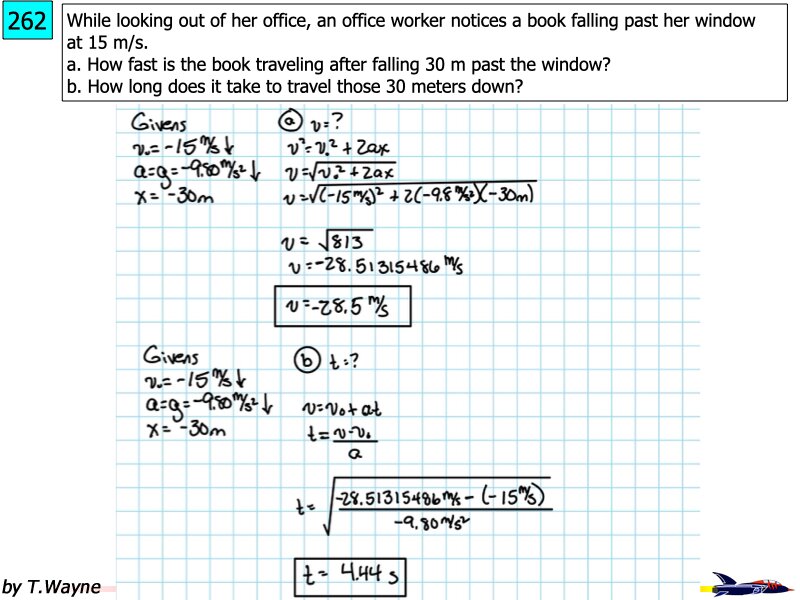 262
While looking out of her office, an office worker notices a book falling past her window
at 15 m/s.
a. How fast is the book traveling after falling 30 m past the window?
b. How long does it take to travel those 30 meters down?
Givens
v₀= -15 m/s ↓
a=g= -9.80 m/s² ↓
x= -30m
ⓐ v=?
v²= v₀² + 2ax
v=√(v₀² + 2ax)
v=√((-15 m/s)² + 2(-9.8 m/s²)(-30m))
v= √813
v=-28.51315486 m/s
v=-28.5 m/s
Givens
v₀= -15 m/s ↓
a=g= -9.80 m/s² ↓
x= -30m
ⓑ t=?
v=v₀+at
t= (v-v₀)/a
t= √((-28.51315486 m/s - (-15 m/s))/(-9.80 m/s²))
t= 4.44 s
by T.Wayne